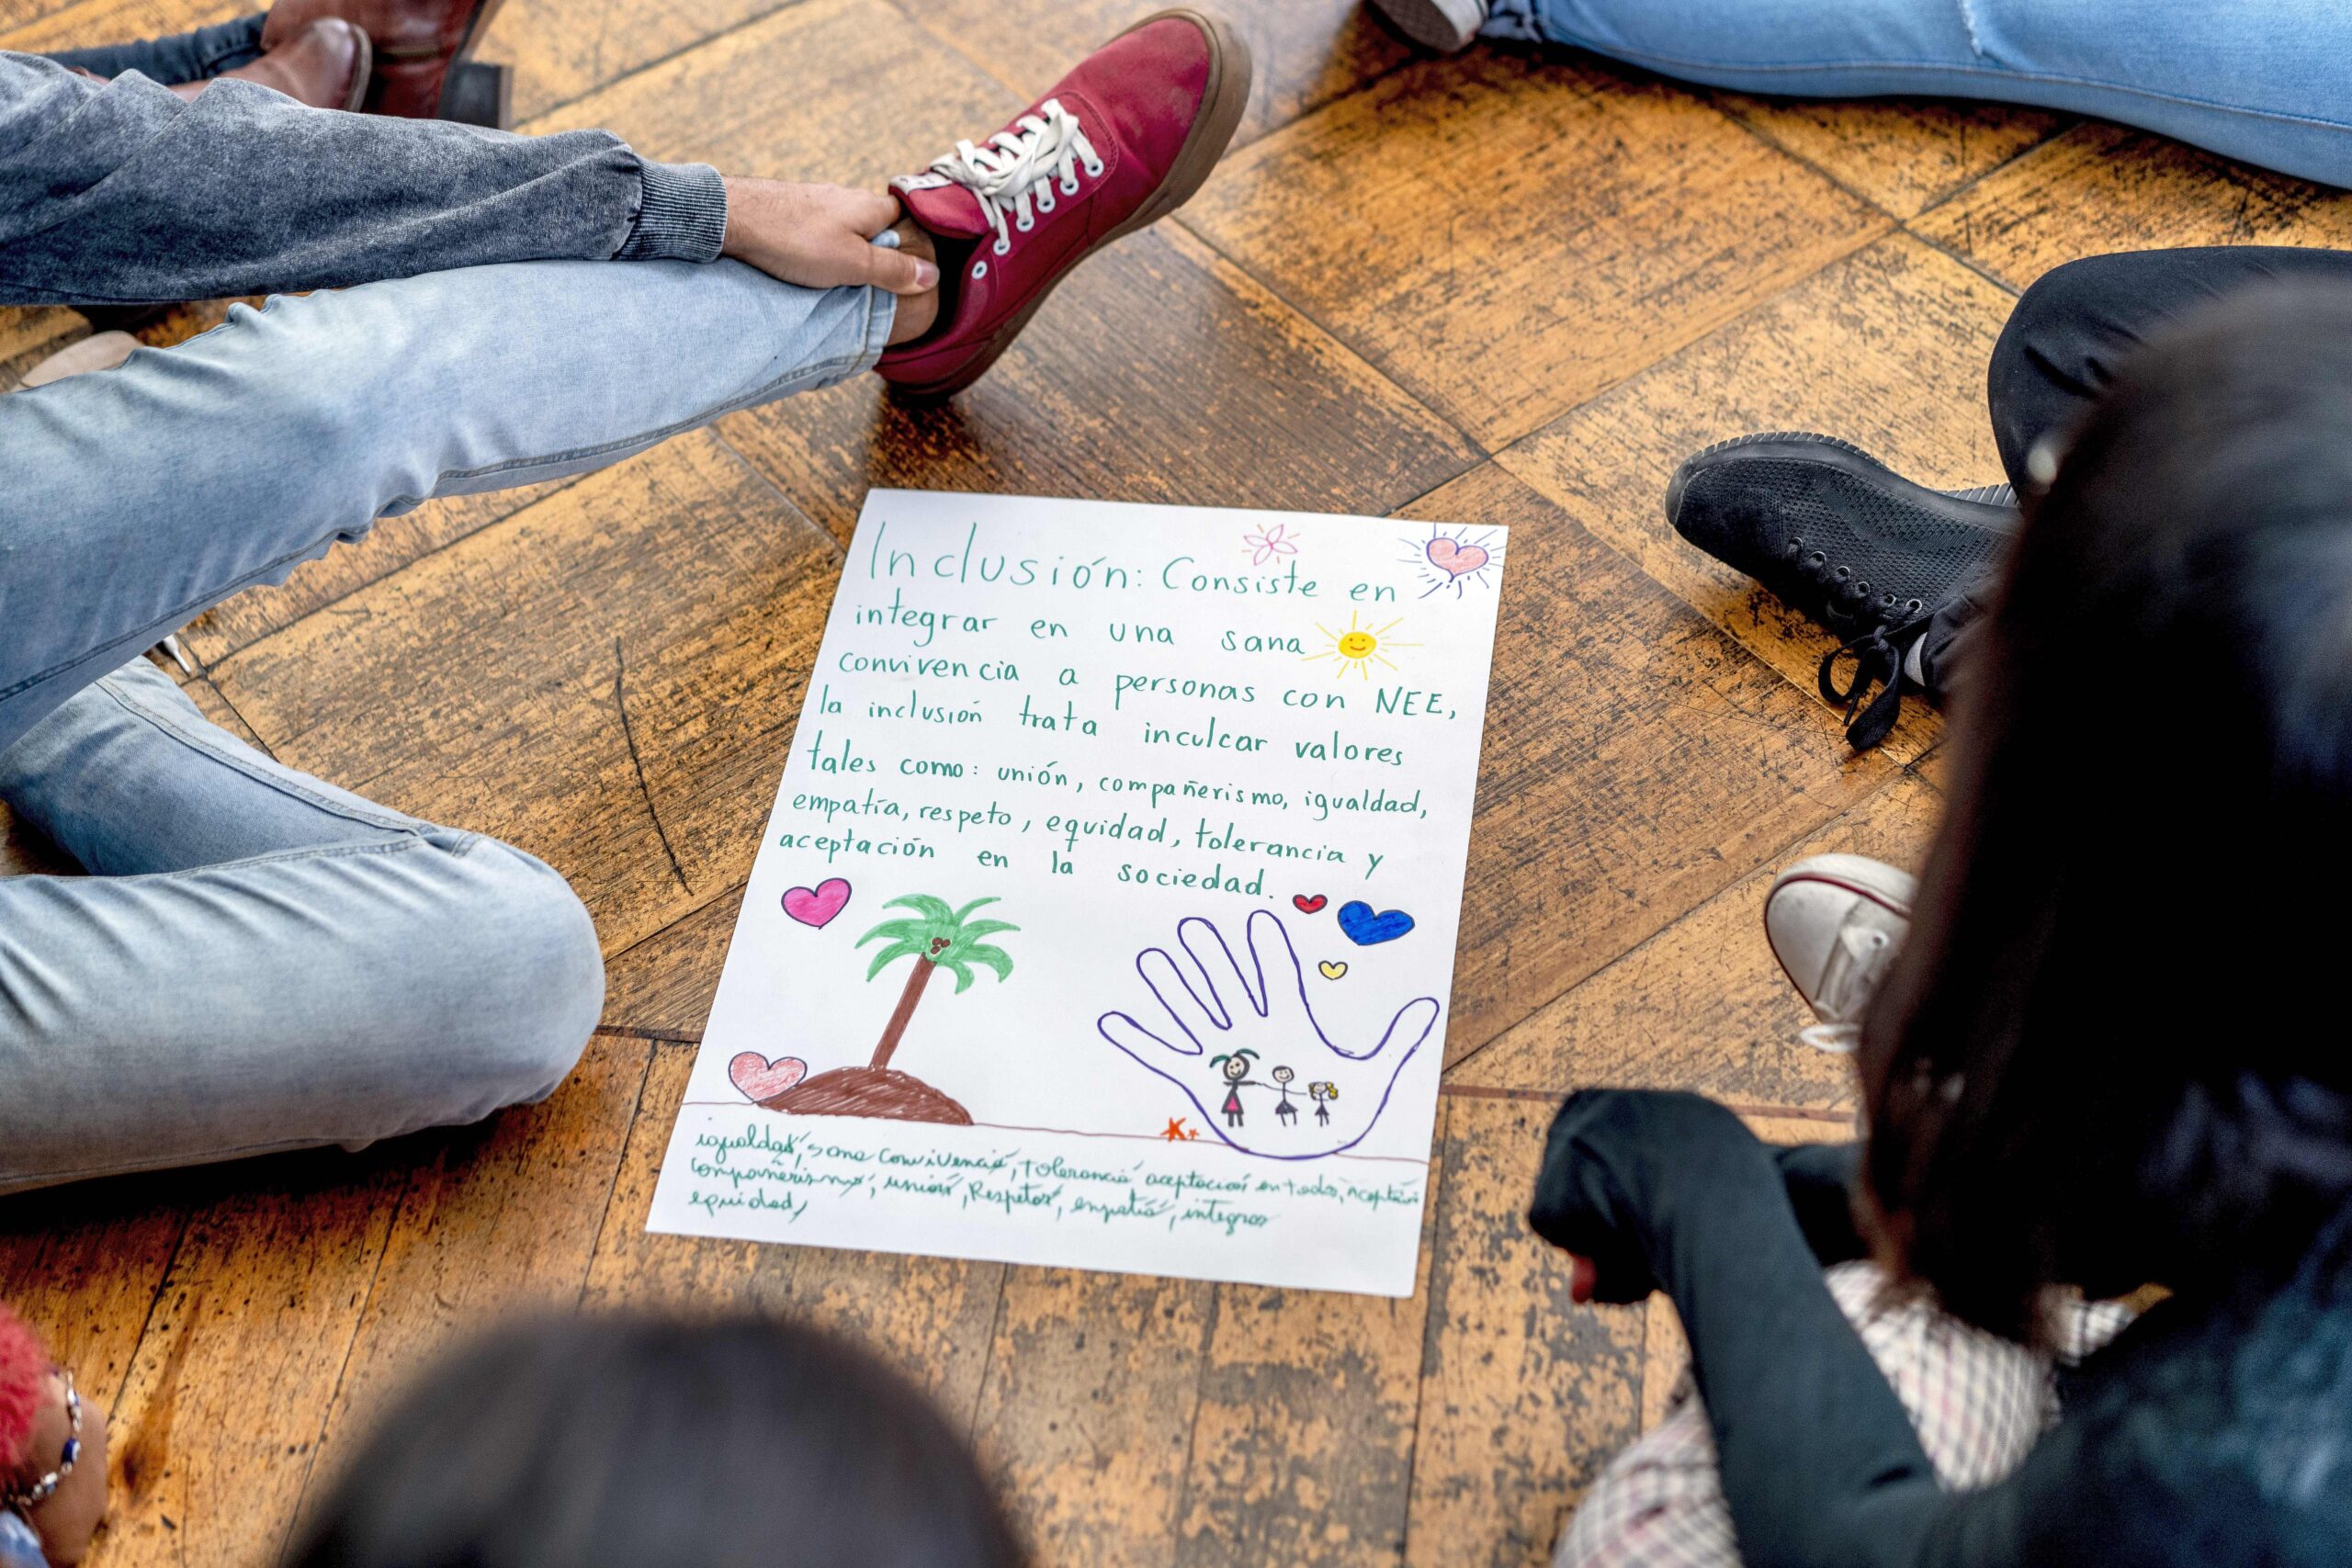 Inclusión: Consiste en
integrar en una sana
convivencia a personas con NEE,
la inclusión trata inculcar valores
tales como: unión, compañerismo, igualdad,
empatía, respeto, equidad, tolerancia y
aceptación en la sociedad.
igualdad, sana convivencia, tolerancia aceptación en todos,
compañerismo, unión, Respeto, empatía, integrar
equidad,